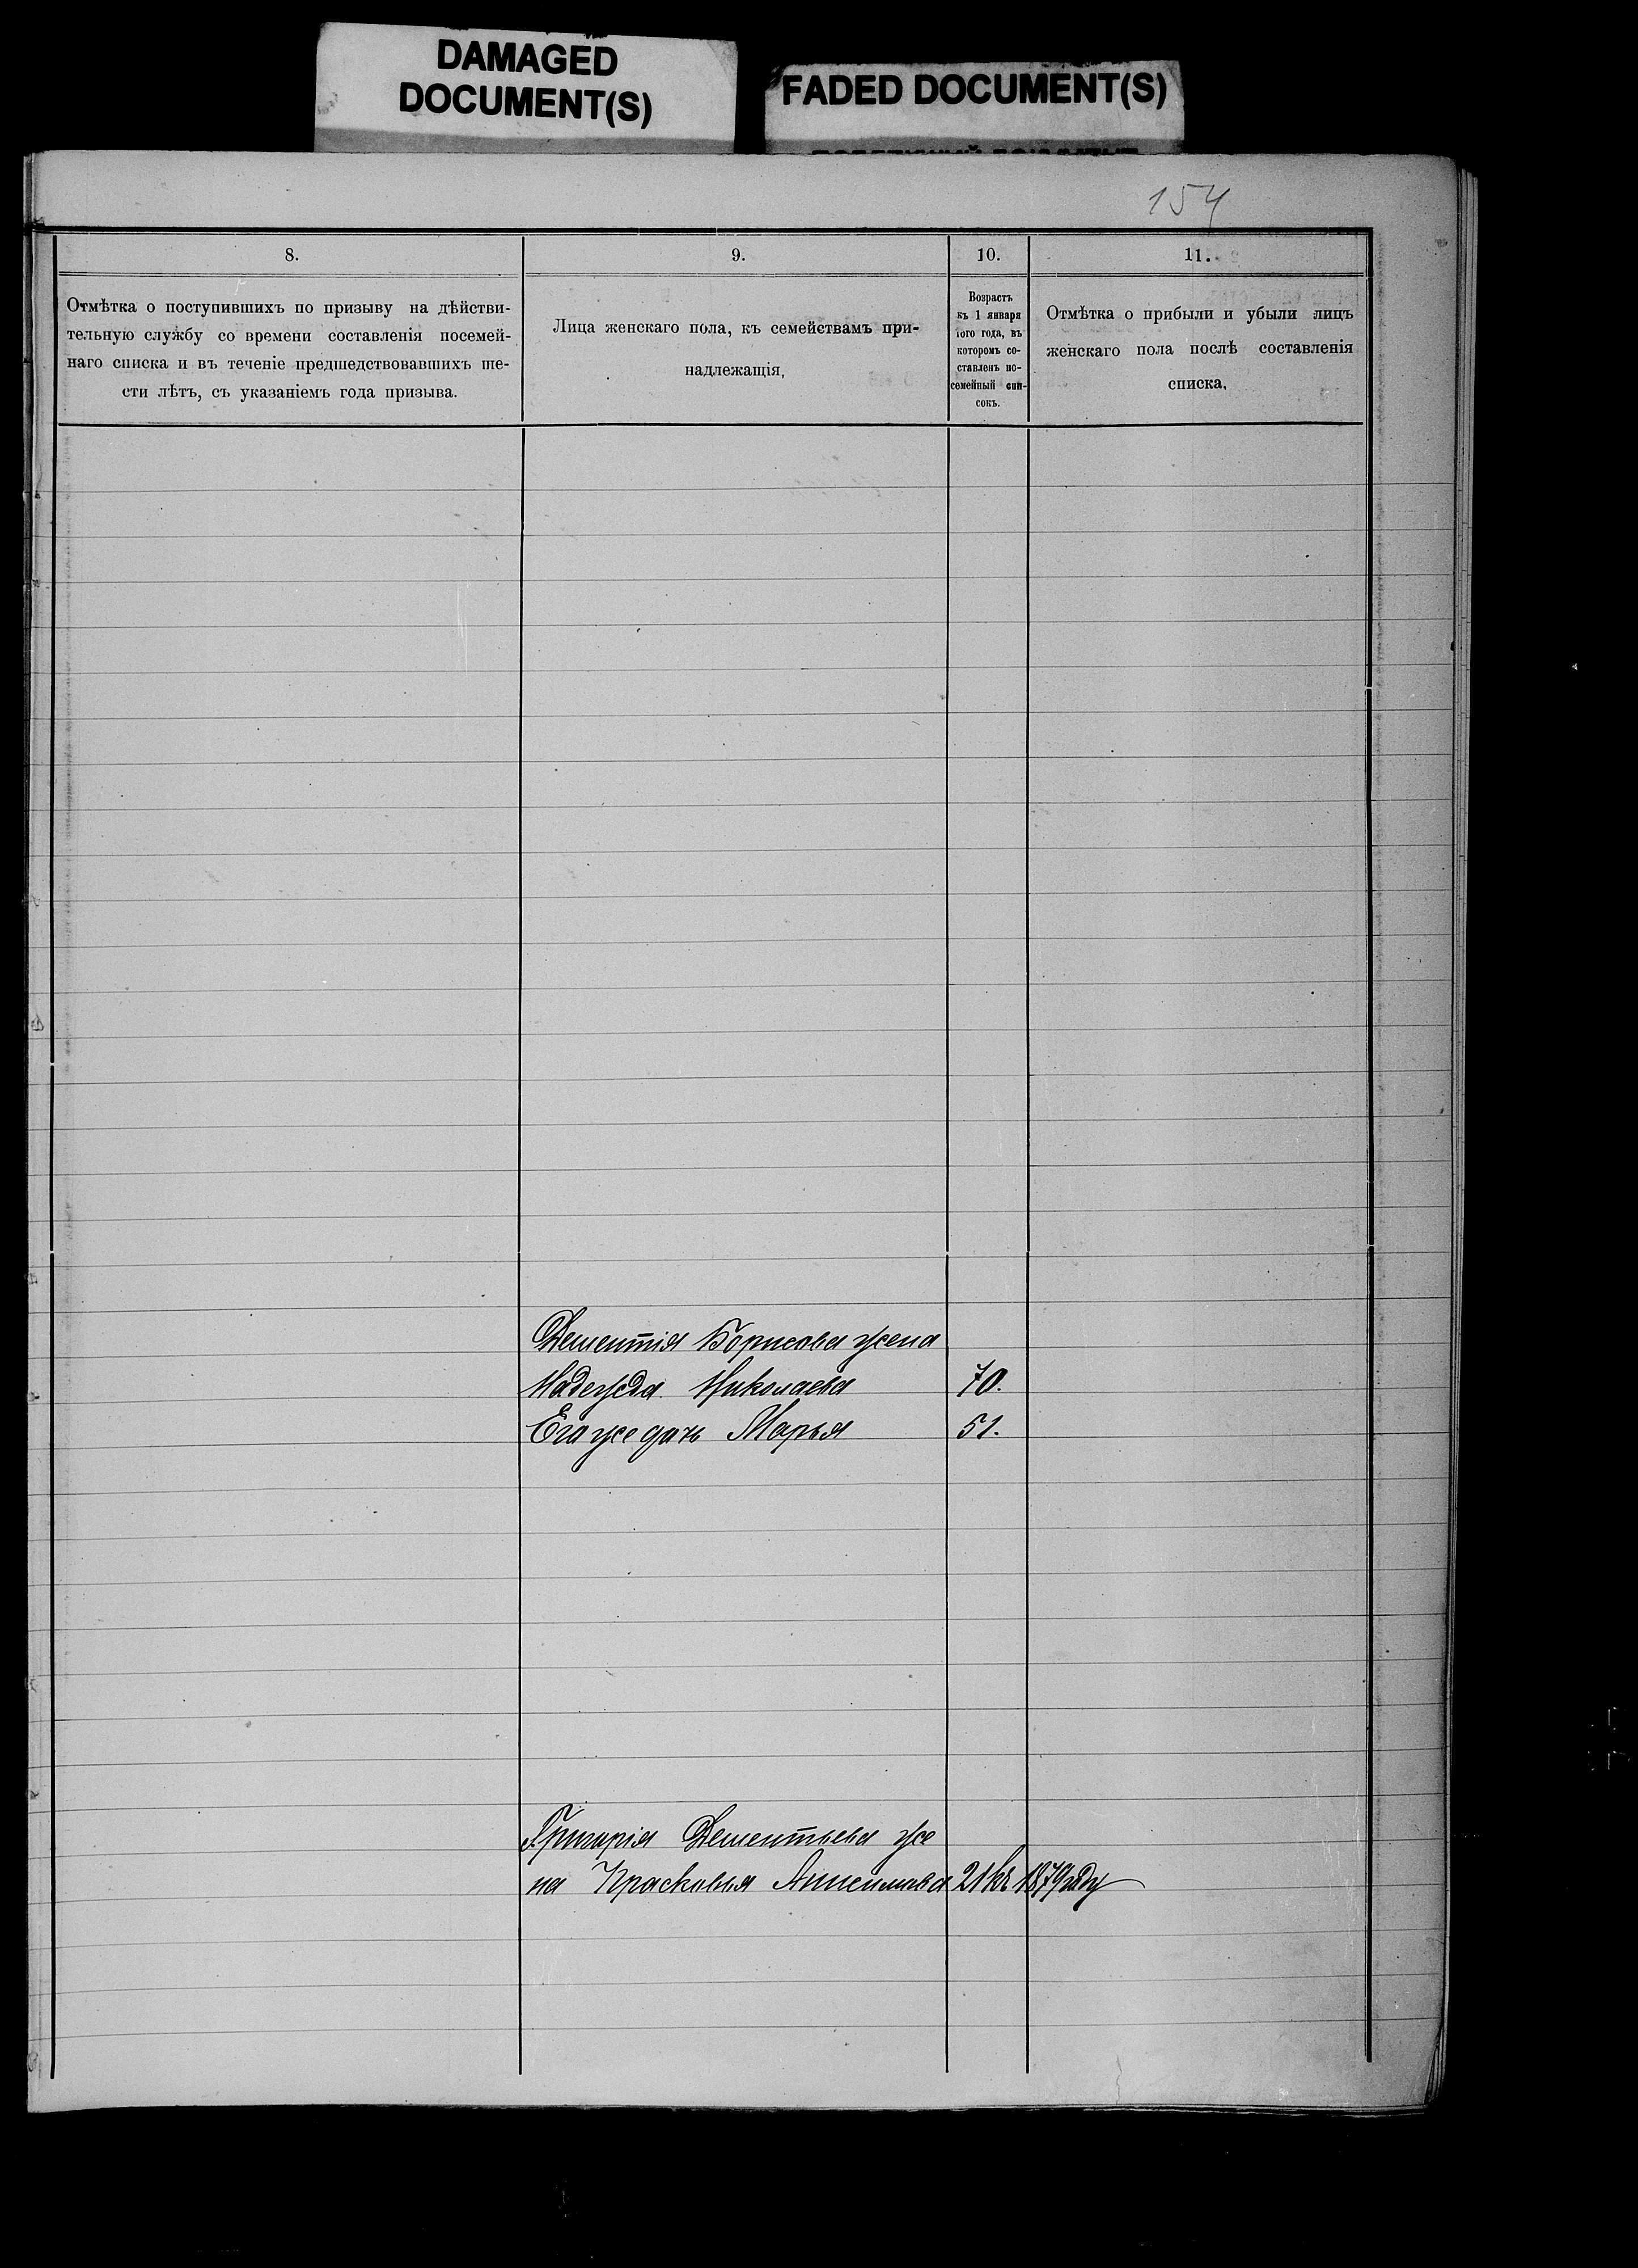 DAMAGED
DOCUMENT(S)
FADED DOCUMENT(S)
154
8.
9.
10.
11.
Отмѣтка о поступившихъ по призыву на дѣйстви-
тельную службу со времени составленія посемей-
наго списка и въ теченіе предшедствовавшихъ ше-
сти лѣтъ, съ указаніемъ года призыва.
Лица женскаго пола, къ семействамъ при-
надлежащія,
Возрастъ
къ 1 января
того года, въ
которомъ со-
ставленъ по-
семейный спи-
сокъ.
Отмѣтка о прибыли и убыли лицъ
женскаго пола послѣ составленія
списка,
Дементія Борисова жена
Надежда Николаева 70.
Его же дочь Марья 51.
Григорія Дементьева же
на Прасковья 21 къ 1879 году